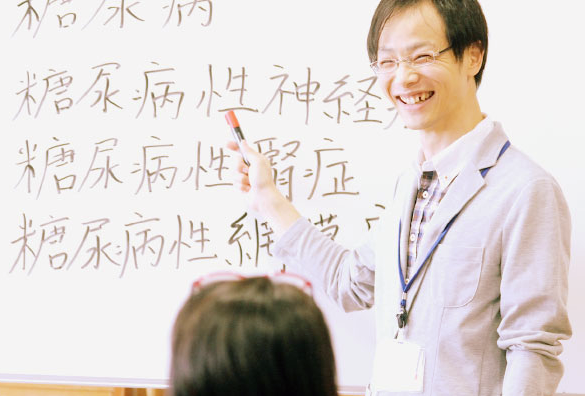 糖尿病
糖尿病性神経
糖尿病性腎症
糖尿病性